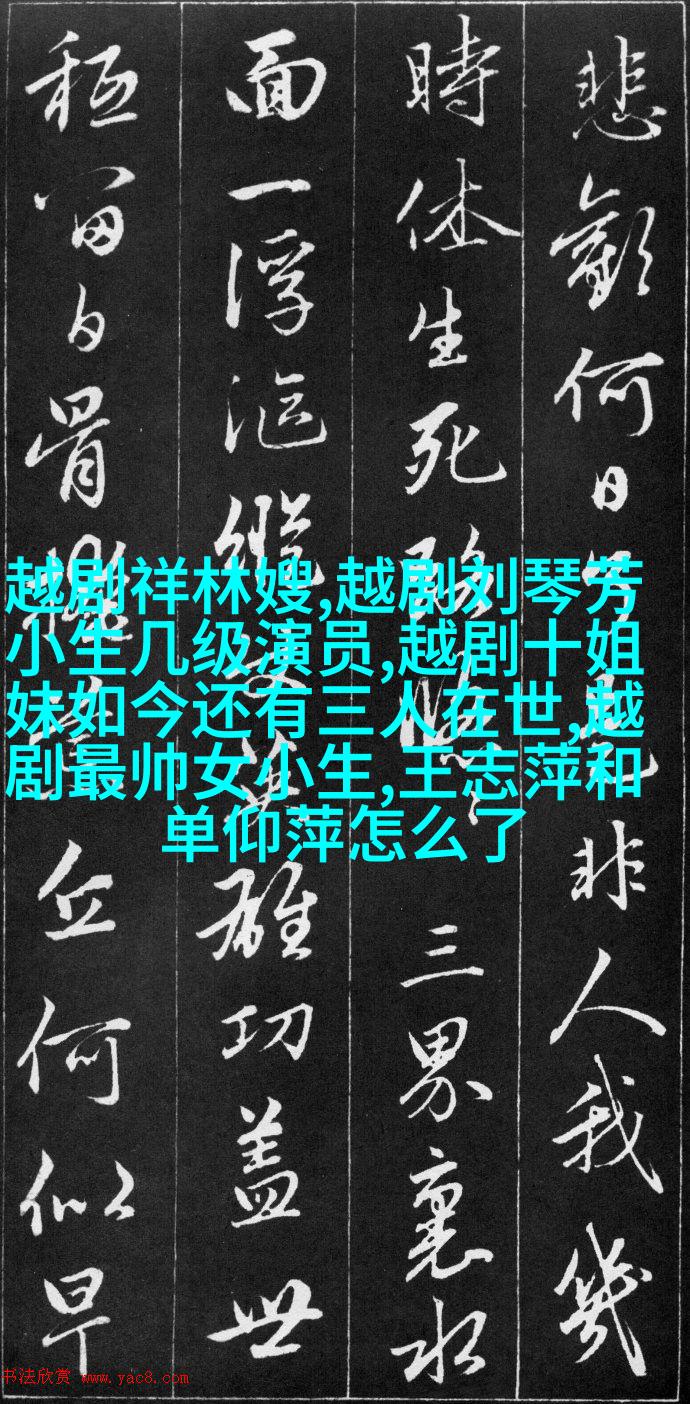 悲歡何日非人我幾
時休生死路三界裏水
面一浮漚縱雄功蓋世
秪留白骨丘何似早
越剧祥林嫂,越剧刘琴芳
小生几级演员,越剧十姐
妹如今还有三人在世,越
剧最帅女小生,王志萍和
单仰萍怎么了
书法欣赏 www.yac8.com